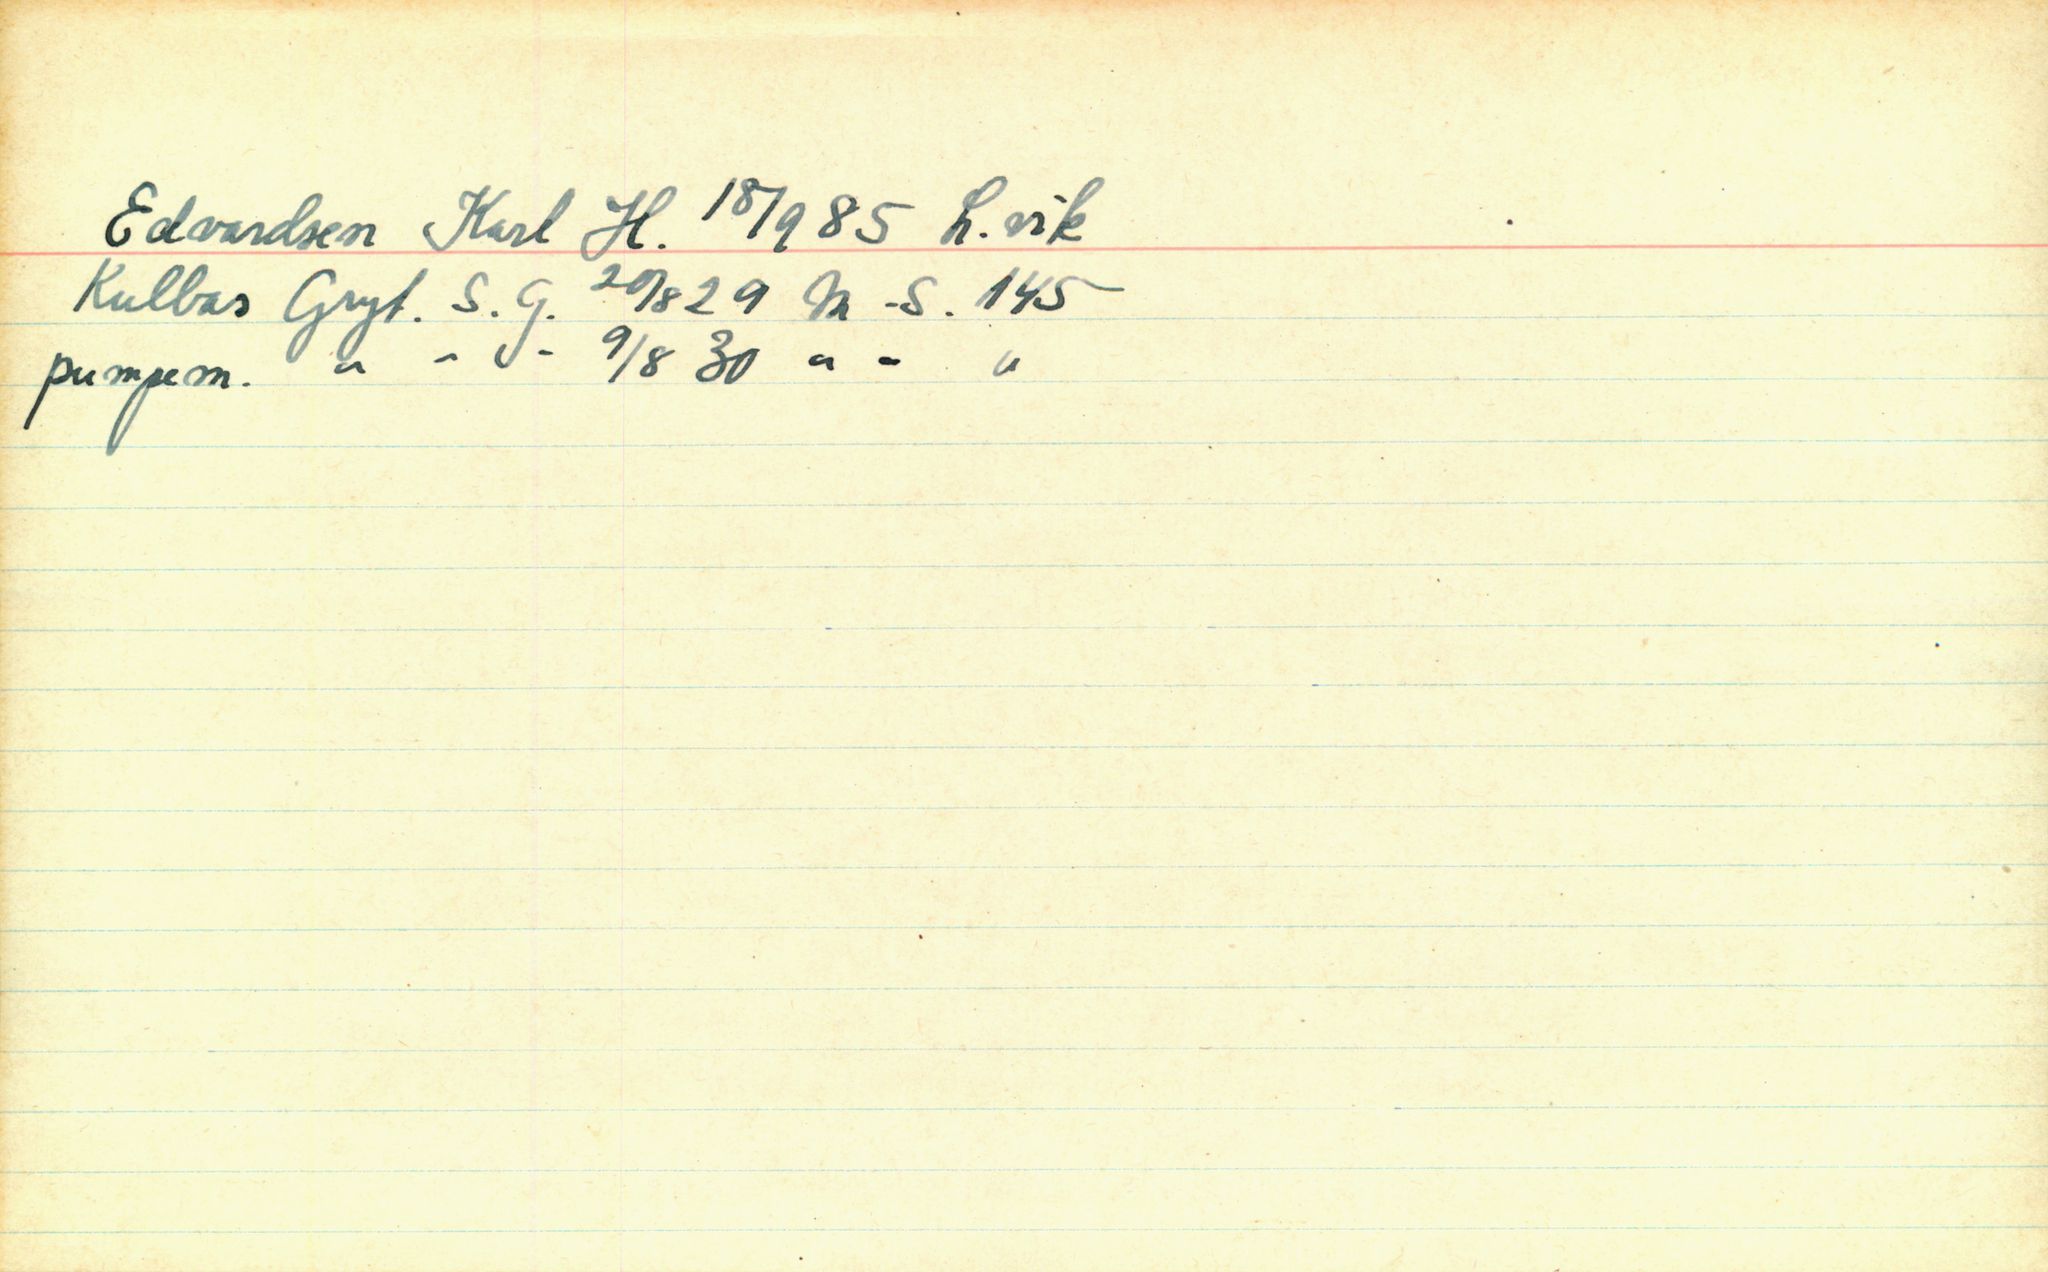 Edvardsen Karl H. 18/9 85 L.vik
Kulbas Gryt. S. G. 20/8 29 M -S. 145
pumpem. " - " - 9/8 30 " - "